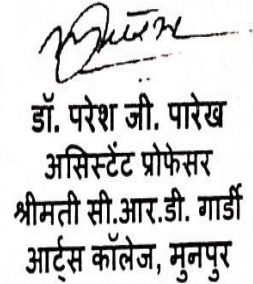 डॉ. परेश जी. पारेख
असिस्टेंट प्रोफेसर
श्रीमती सी.आर.डी. गार्डी
आर्ट्स कॉलेज, मुनपुर